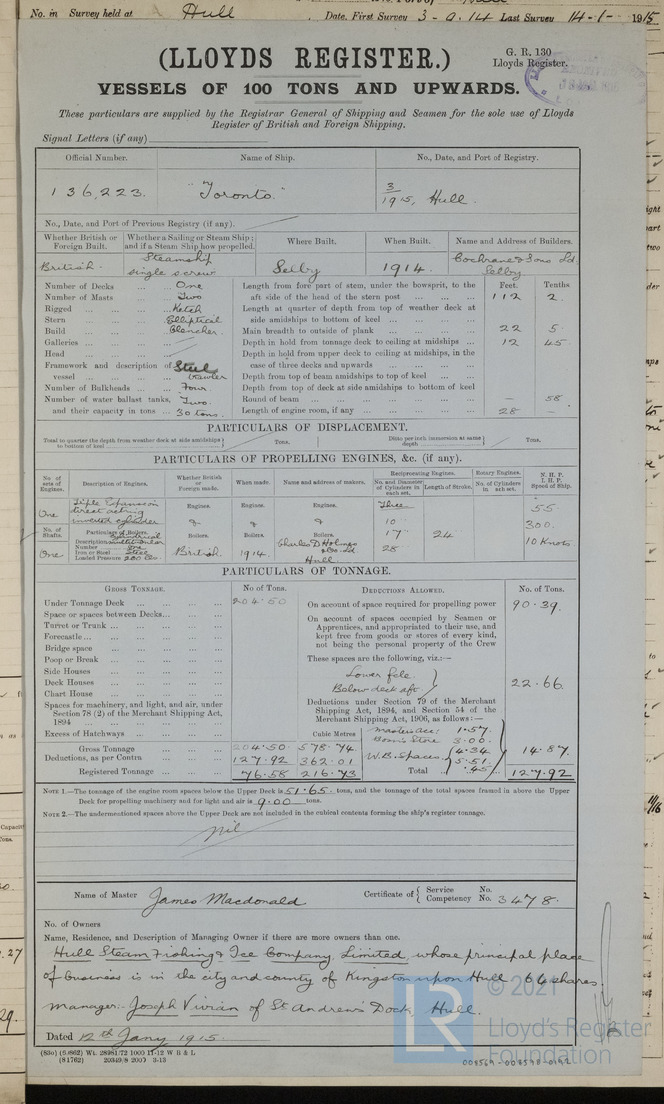 No. in Survey held at Hull . Date, First Survey 3-9.14 Last Survey 14-1- 1915
(LLOYDS REGISTER.)
G. R. 130
Lloyds Register.
VESSELS OF 100 TONS AND UPWARDS.
These particulars are supplied by the Registrar General of Shipping and Seamen for the sole use of Lloyds
Register of British and Foreign Shipping.
Signal Letters (if any)
Official Number. Name of Ship. No., Date, and Port of Registry.
136,223. "Toronto." 3/1915, Hull.
No., Date, and Port of Previous Registry (if any).
Whether British or Foreign Built. Whether a Sailing or Steam Ship; and if a Steam Ship how propelled. Where Built. When Built. Name and Address of Builders.
British. Steamship single screw Selby 1914. Cochrane & Sons Ld Selby
Number of Decks ... One
Number of Masts ... Two
Rigged ... Ketch
Stern ... Elliptical
Build ... Clencher.
Galleries ...
Head ...
Framework and description of vessel ... Steel
Number of Bulkheads ... Four
Number of water ballast tanks, Two
and their capacity in tons ... 30 tons.
Feet. Tenths.
Length from fore part of stem, under the bowsprit, to the aft side of the head of the stern post ... 112 2.
Length at quarter of depth from top of weather deck at side amidships to bottom of keel ...
Main breadth to outside of plank ... 22 5.
Depth in hold from tonnage deck to ceiling at midships ... 12 45
Depth in hold from upper deck to ceiling at midships, in the case of three decks and upwards ...
Depth from top of beam amidships to top of keel ...
Depth from top of deck at side amidships to bottom of keel
Round of beam ... — 58
Length of engine room, if any ... 28 —
PARTICULARS OF DISPLACEMENT.
Total to quarter the depth from weather deck at side amidships to bottom of keel Tons. Ditto per inch immersion at same depth Tons.
PARTICULARS OF PROPELLING ENGINES, &c. (if any).
No. of sets of Engines. Description of Engines. Whether British or Foreign made. When made. Name and address of makers. Reciprocating Engines. Rotary Engines. N. H. P. I. H. P. Speed of Ship.
No. and Diameter of Cylinders in each set. Length of Stroke. No. of Cylinders in each set.
One Triple Expansion direct acting inverted cylinder Engines. Engines. Engines. Three 55
No. of Shafts. Particulars of Boilers. Boilers. Boilers. Boilers. 10 300.
Description Cylindrical multitubular 17 24 10 Knots
Number One
Iron or Steel Steel
Loaded Pressure 200 lbs.
One British. 1914. Charles D Holmes & Co. Ld Hull 28
PARTICULARS OF TONNAGE.
GROSS TONNAGE. No of Tons. DEDUCTIONS ALLOWED. No. of Tons.
Under Tonnage Deck ... 204.50
Space or spaces between Decks ...
Turret or Trunk ...
Forecastle ...
Bridge space ...
Poop or Break ...
Side Houses ...
Deck Houses ...
Chart House ...
Spaces for machinery, and light, and air, under Section 78 (2) of the Merchant Shipping Act, 1894 ...
Excess of Hatchways ...
Cubic Metres
Gross Tonnage 204.50 578.74
Deductions, as per Contra ... 127.92 362.01
Registered Tonnage ... 76.58 216.73
On account of space required for propelling power 90.39.
On account of spaces occupied by Seamen or Apprentices, and appropriated to their use, and kept free from goods or stores of every kind, not being the personal property of the Crew
These spaces are the following, viz.:—
Lower fcle
Below deck aft 22.66.
Deductions under Section 79 of the Merchant Shipping Act, 1894, and Section 54 of the Merchant Shipping Act, 1906, as follows:—
Masters acc: 1.57.
Bosn's Store 3.00.
W.B. Spaces 4.34 5.51 .45 14.87.
Total 127.92
NOTE 1.—The tonnage of the engine room spaces below the Upper Deck is 51.65. tons, and the tonnage of the total spaces framed in above the Upper
Deck for propelling machinery and for light and air is 9.00 tons.
NOTE 2.—The undermentioned spaces above the Upper Deck are not included in the cubical contents forming the ship's register tonnage.
nil
Name of Master James Macdonald Certificate of Service Competency No. No. 3478.
No. of Owners
Name, Residence, and Description of Managing Owner if there are more owners than one.
Hull Steam Fishing & Ice Company, Limited, whose principal place
of business is in the city and county of Kingston upon Hull 64 shares.
Manager:- Joseph Vivian of St Andrew's Dock, Hull.
Dated 12th Jany 1915.
© 2021
LR
Lloyd's Register
Foundation
003569-003598-0192